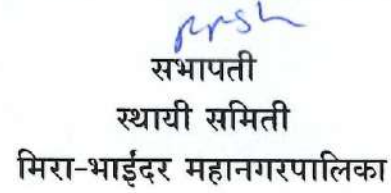 सभापती
स्थायी समिती
मिरा-भाईंदर महानगरपालिका